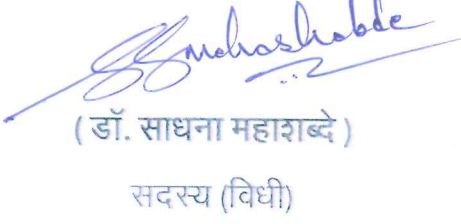 SSmahashabde
( डॉ. साधना महाशब्दे )
सदस्य (विधी)